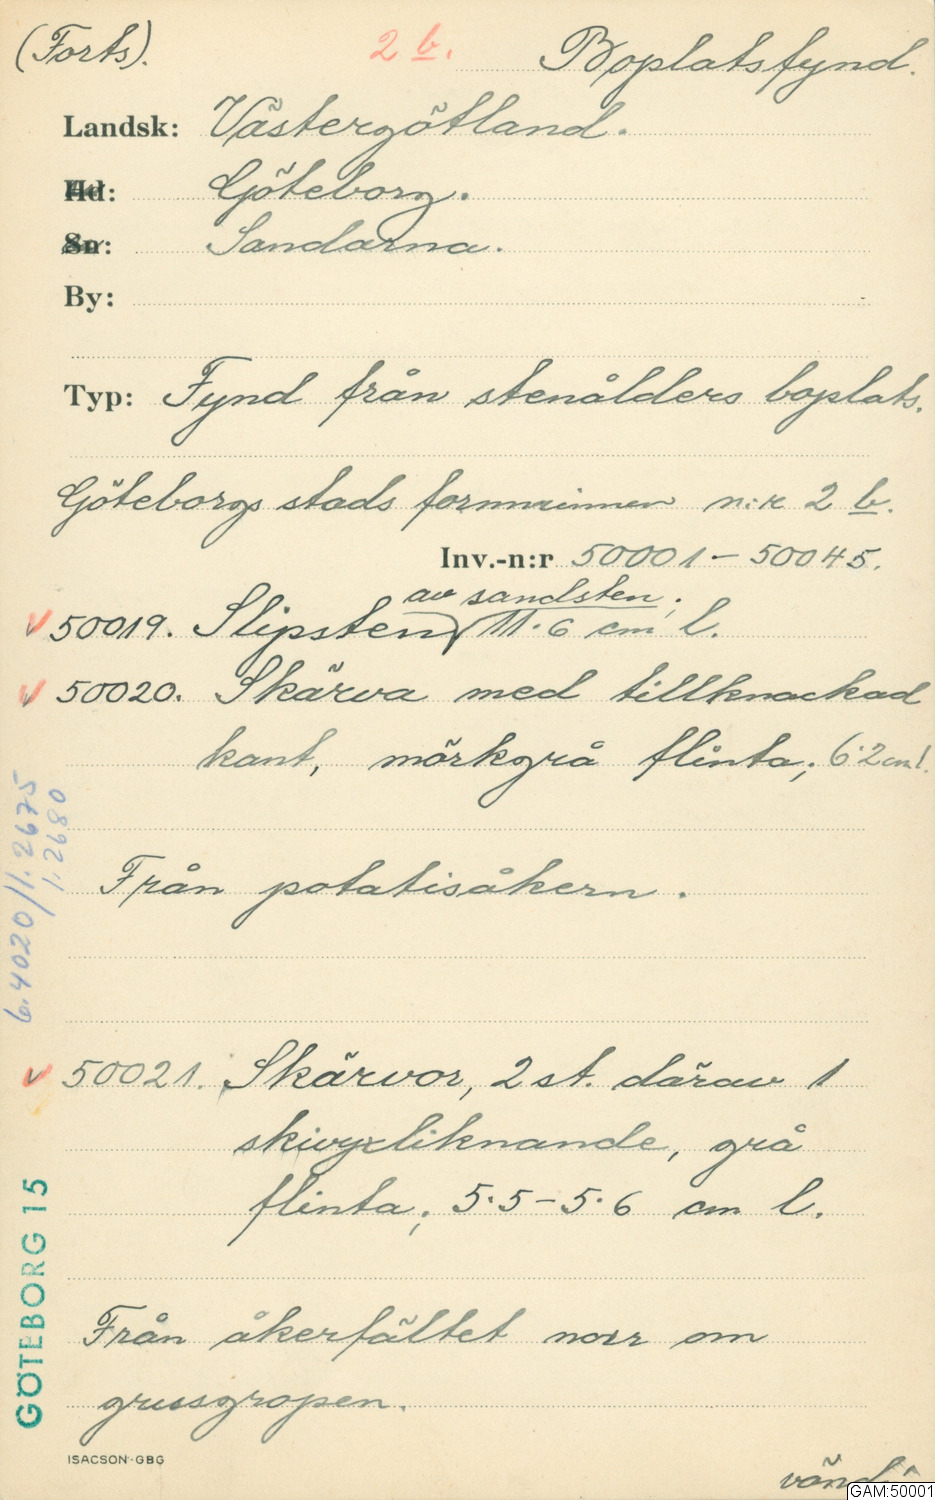 (Forts). 2 b. Boplatsfynd.
Landsk: Västergötland.
Hd: Göteborg.
Sn: Sandarna.
By:
Typ: Fynd från stenålders boplats.
Göteborgs stads fornminnen n:r 2 b.
Inv.-n:r 50001 – 50045.
av sandsten;
50019. Slipsten 11·6 cm l.
50020. Skärva med tillknackad
kant, mörkgrå flinta; 6·2 cm l.
6.4020/1.2675
1.2680
Från potatisåkern.
50021. Skärvor, 2 st. därav 1
skivyxliknande, grå
flinta; 5·5 – 5·6 cm l.
GÖTEBORG 15
Från åkerfältet norr om
grusgropen.
ISACSON-GBG
vänd
GAM:50001